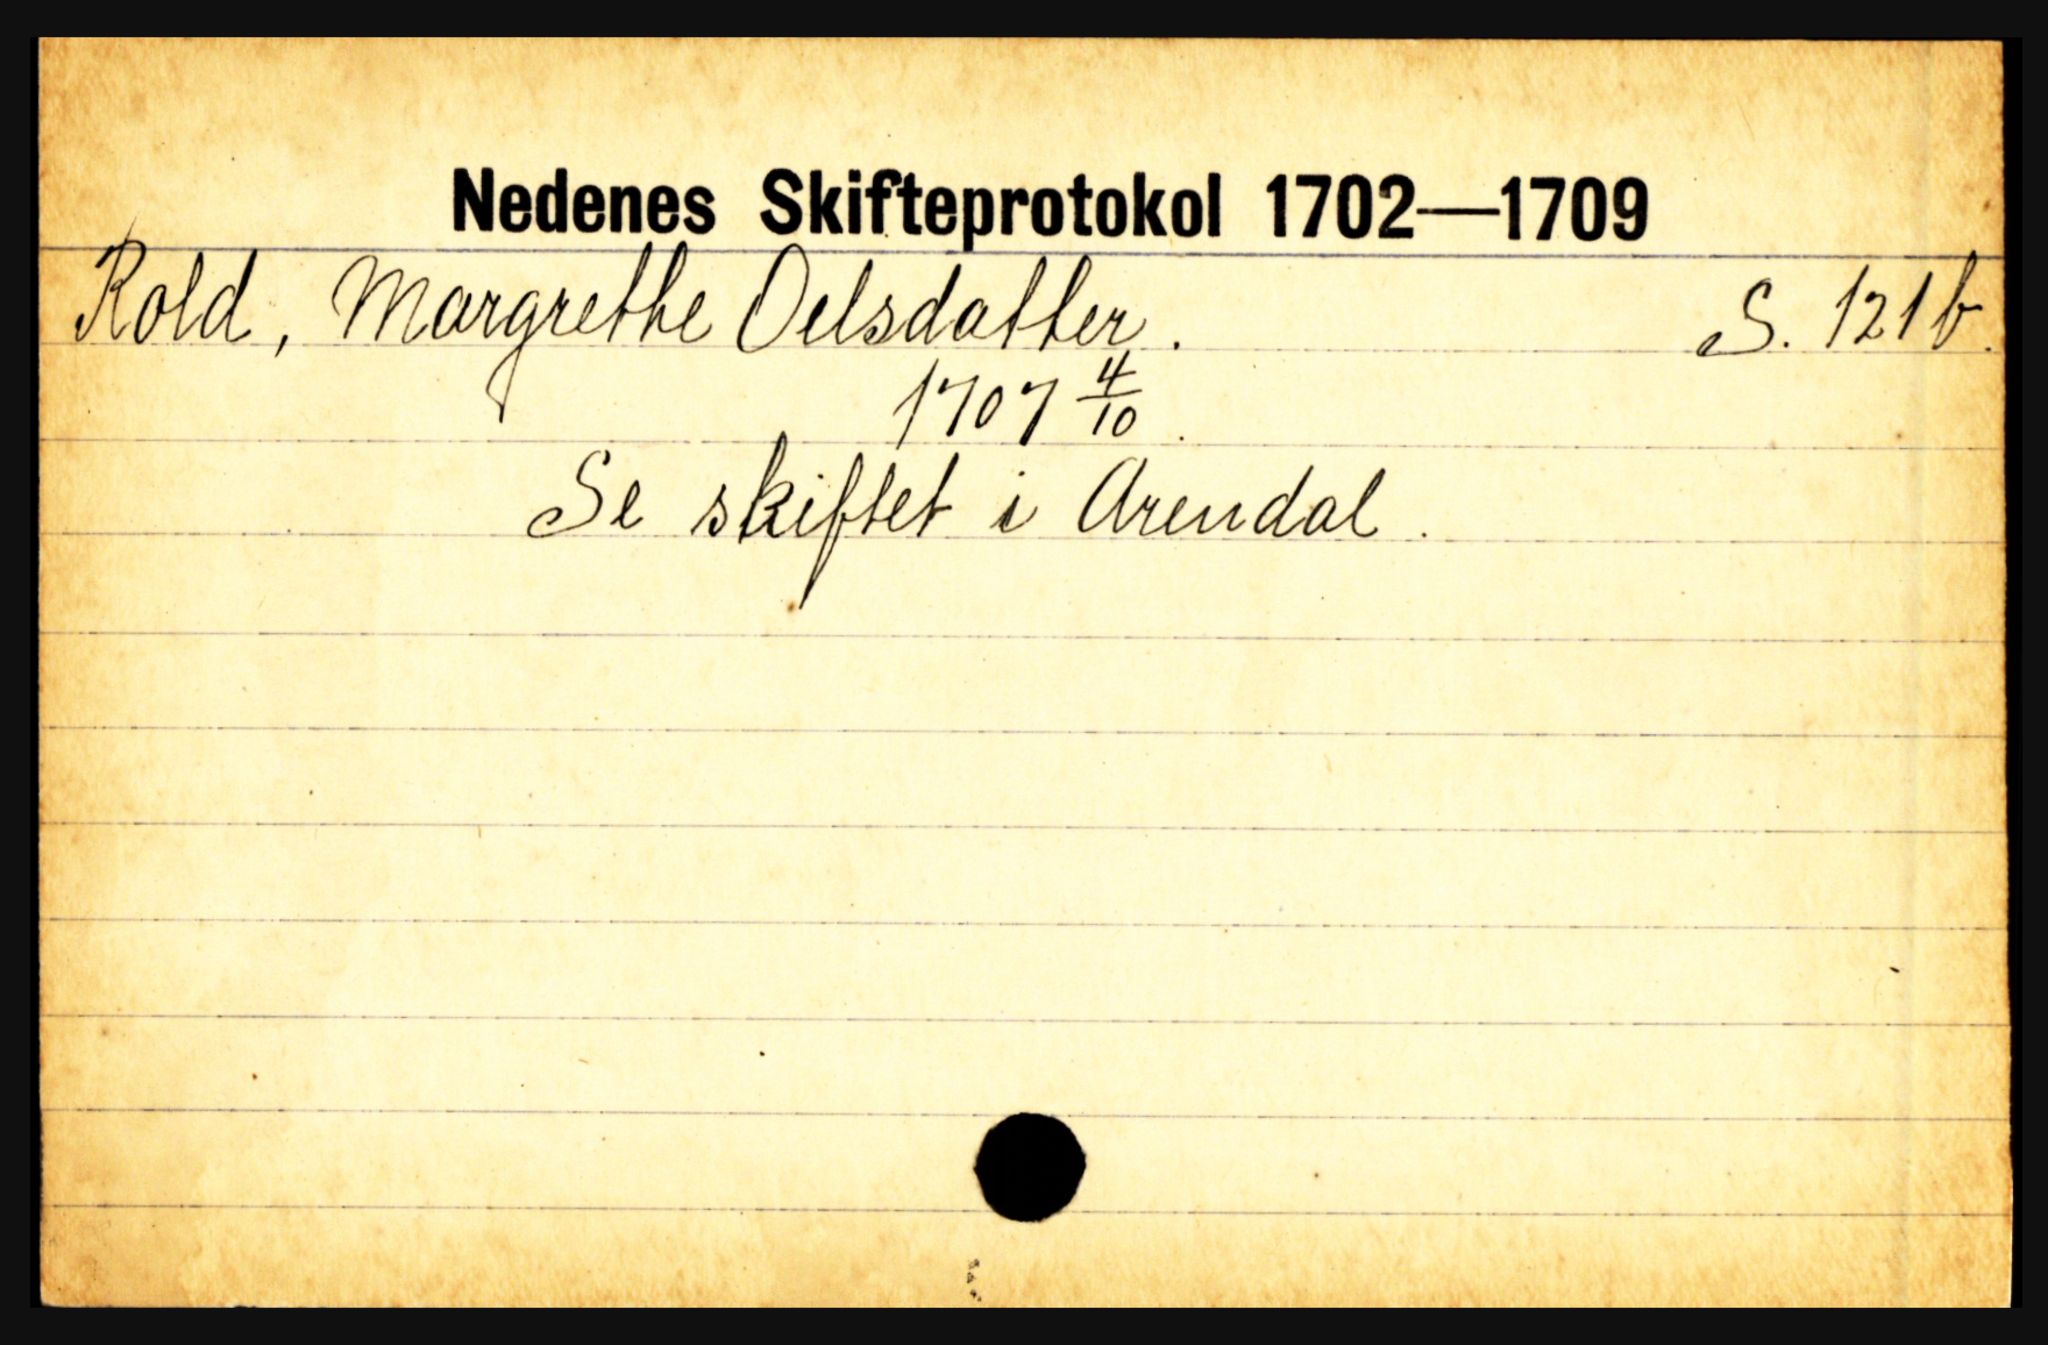 Nedenes Skifteprotokol 1702—1709
Rold, Margrethe Oelsdatter. S. 121b.
1707 4/10.
Se skiftet i Arendal.